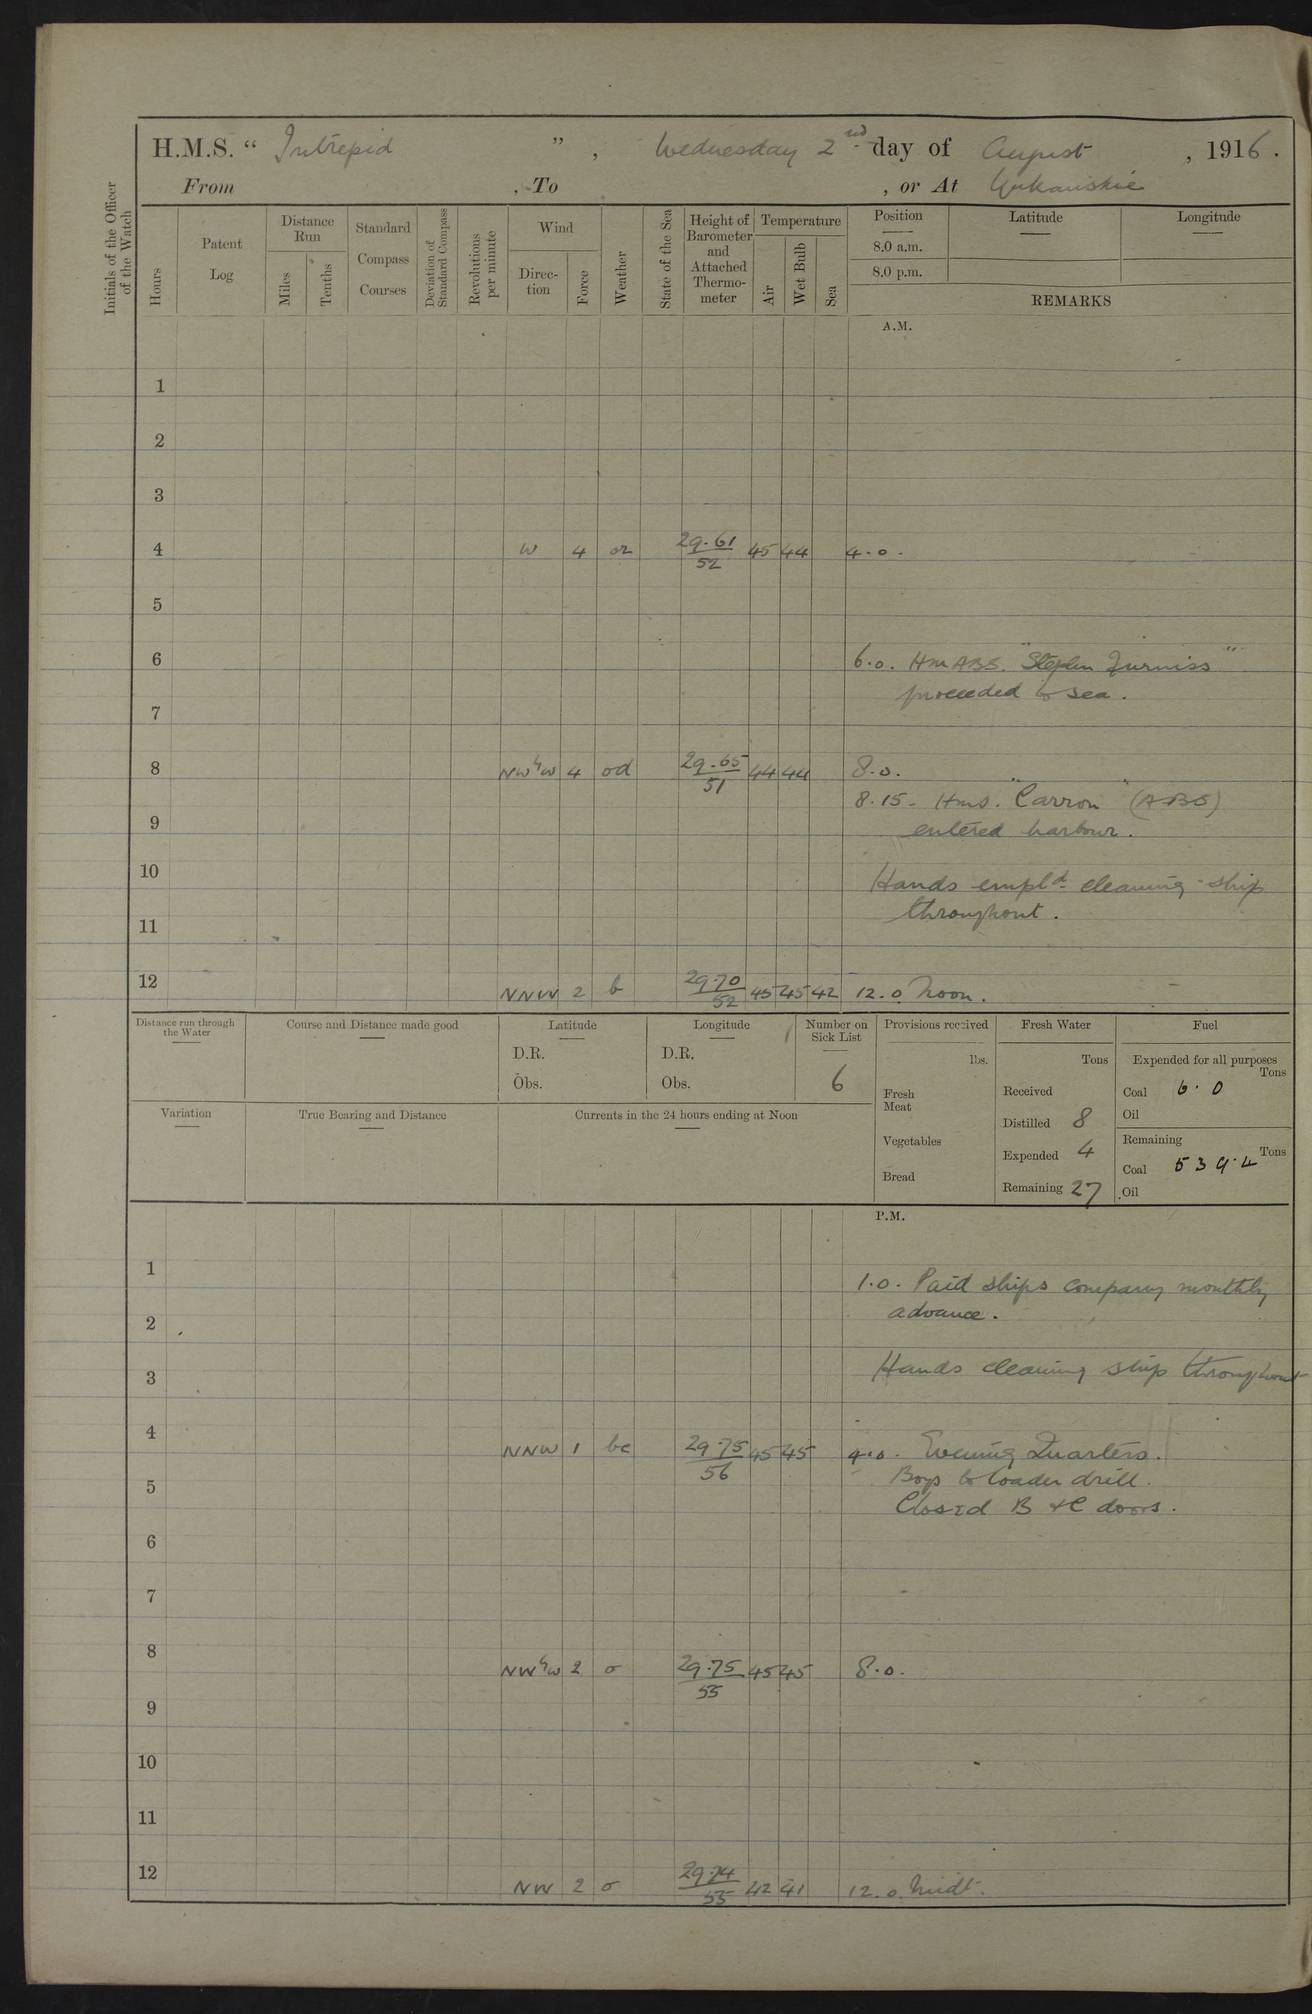 H.M.S. “ Intrepid ” , Wednesday 2nd day of August , 1916 .
From , To , or At Yukanskie
Initials of the Officer of the Watch
Hours
Patent Log
Distance Run
Miles
Tenths
Standard Compass Courses
Deviation of Standard Compass
Revolutions per minute
Wind
Direction
Force
Weather
State of the Sea
Height of Barometer and Attached Thermometer
Temperature
Air
Wet Bulb
Sea
Position Latitude Longitude
8.0 a.m.
8.0 p.m.
REMARKS
A.M.
1
2
3
4 W 4 or 29.61/52 45 44 4.0.
5
6 6.0. HM ABS. "Stephen Furniss"
proceeded to sea.
7
8 NWbyW 4 od 29.65/51 44 44 8.0.
8.15. H.M.S. "Carron" (ABS)
9 entered harbour.
10 Hands empld cleaning ship
11 throughout.
12 NNW 2 b 29.70/52 45 45 42 12.0 Noon.
Distance run through the Water
Course and Distance made good
Latitude
D.R.
Obs.
Longitude
D.R.
Obs.
Number on Sick List
6
Provisions received
lbs.
Fresh Meat
Vegetables
Bread
Fresh Water
Tons
Received
Distilled 8
Expended 4
Remaining 27
Fuel
Expended for all purposes
Tons
Coal 6.0
Oil
Remaining
Tons
Coal 539.4
Oil
Variation
True Bearing and Distance
Currents in the 24 hours ending at Noon
P.M.
1 1.0. Paid ships company monthly
2 advance.
3 Hands cleaning ship throughout
4 NNW 1 bc 29.75/56 45 45 4.0. Evening Quarters.
Boys to loader drill.
5 Closed B & C doors.
6
7
8 NWbyW 2 o 29.75/55 45 45 8.0.
9
10
11
12 NW 2 o 29.74/55 42 41 12.0 Midt.